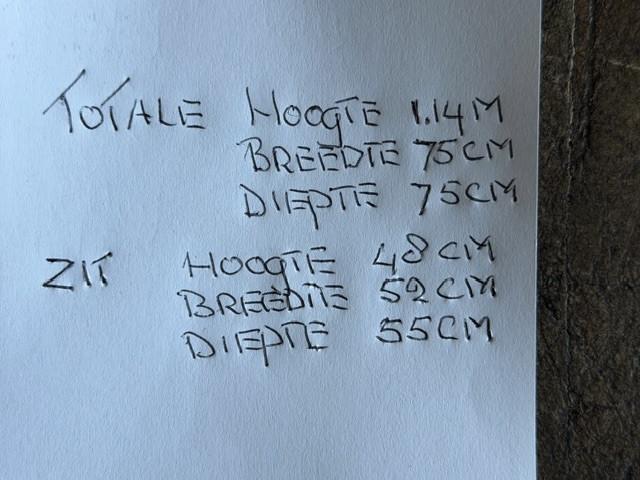 TOTALE HOOGTE 1.14M
BREEDTE 75CM
DIEPTE 75CM
ZIT HOOGTE 48CM
BREEDTE 52CM
DIEPTE 55CM